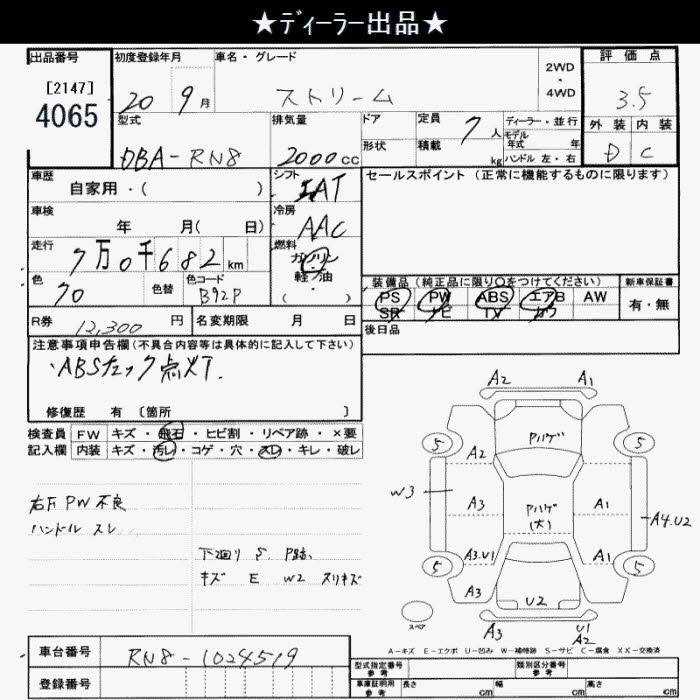 ★ディーラー出品★
出品番号
[2147]
4065
初度登録年月
20 9月
車名・グレード
ストリーム
2WD
・
4WD
評価点
3.5
外装 内装
D C
型式
DBA-RN8
排気量
2000cc
ドア
形状
定員
7人
積載
kg
ディーラー・並行
モデル
年式 年
ハンドル 左・右
車歴
自家用・( )
シフト
IAT
冷房
AAC
車検
年 月( 日)
走行
7万0千682km
燃料
ガソリン
軽油
( ・ )
色
70
色替
色コード
B92P
R券
12,300円
名変期限 月 日
セールスポイント (正常に機能するものに限ります)
装備品(純正品に限り○をつけてください)
PS PW ABS エアB AW
SR ナビ TV カワ
新車保証書
有・無
後日品
注意事項申告欄(不具合内容等は具体的に記入して下さい)
・ABSチェック点灯.
修復歴 有 〔箇所 〕
検査員 FW キズ・飛石・ヒビ割・リペア跡・×要
記入欄 内装 キズ・汚レ・コゲ・穴・スレ・キレ・破レ
右F PW 不良
ハンドル スレ
下廻り S
キズ E W2 スリキズ
A2 A1
Pハゲ
5 5
A2
W3
A3
Pハゲ
(大)
A1
A4.U2
A3.U1 A1
5 5
A3
U2
スペア
A3
U1
A2
A-キズ E-エクボ U-凹み W-補修跡 S-サビ C-腐食 XX-交換済
車台番号
RN8-1024519
登録番号
型式指定番号
参考
類別区分番号
参考
車庫証明用
参考
長さ cm 幅 cm 高さ cm